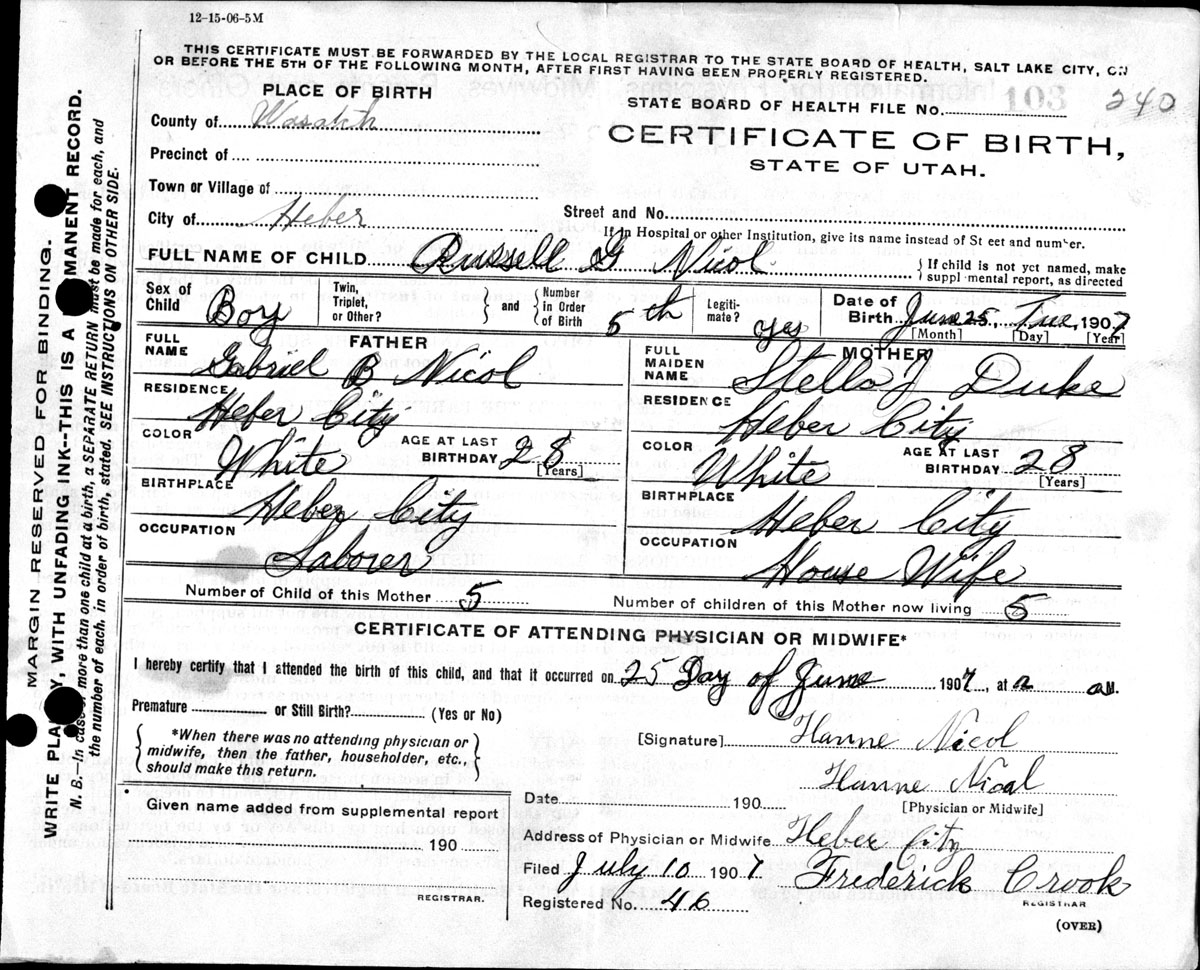 12-15-06-5M
THIS CERTIFICATE MUST BE FORWARDED BY THE LOCAL REGISTRAR TO THE STATE BOARD OF HEALTH, SALT LAKE CITY, ON
OR BEFORE THE 5TH OF THE FOLLOWING MONTH, AFTER FIRST HAVING BEEN PROPERLY REGISTERED.
PLACE OF BIRTH
County of Wasatch
Precinct of
Town or Village of
City of Heber
STATE BOARD OF HEALTH FILE No. 103 240
CERTIFICATE OF BIRTH,
STATE OF UTAH.
Street and No.
If in Hospital or other Institution, give its name instead of St eet and number.
FULL NAME OF CHILD Russell G Nicol
If child is not yet named, make
suppl mental report, as directed
Sex of Child Boy
Twin, Triplet, or Other?
and Number in Order of Birth 5th
Legitimate? yes
Date of Birth June 25, Tue, 1907
[Month] [Day] [Year]
FATHER
FULL NAME Gabriel B Nicol
RESIDENCE Heber City
COLOR White AGE AT LAST BIRTHDAY 28 [Years]
BIRTHPLACE Heber City
OCCUPATION Laborer
MOTHER
FULL MAIDEN NAME Stella J Duke
RESIDENCE Heber City
COLOR White AGE AT LAST BIRTHDAY 28 [Years]
BIRTHPLACE Heber City
OCCUPATION House Wife
Number of Child of this Mother 5 Number of children of this Mother now living 5
CERTIFICATE OF ATTENDING PHYSICIAN OR MIDWIFE*
I hereby certify that I attended the birth of this child, and that it occurred on 25 Day of June 1907, at 2 a M.
Premature or Still Birth? (Yes or No)
*When there was no attending physician or
midwife, then the father, householder, etc.,
should make this return.
[Signature] Hanne Nicol
Hanne Nicol
Date 190 [Physician or Midwife]
Given name added from supplemental report
190
REGISTRAR.
Address of Physician or Midwife Heber City
Filed July 10 1907 Frederick Crook
REGISTRAR
Registered No. 46
(OVER)
MARGIN RESERVED FOR BINDING.
WRITE PLA Y, WITH UNFADING INK--THIS IS A MANENT RECORD.
N. B.—In case more than one child at a birth, a SEPARATE RETURN must be made for each, and
the number of each, in order of birth, stated. SEE INSTRUCTIONS ON OTHER SIDE.